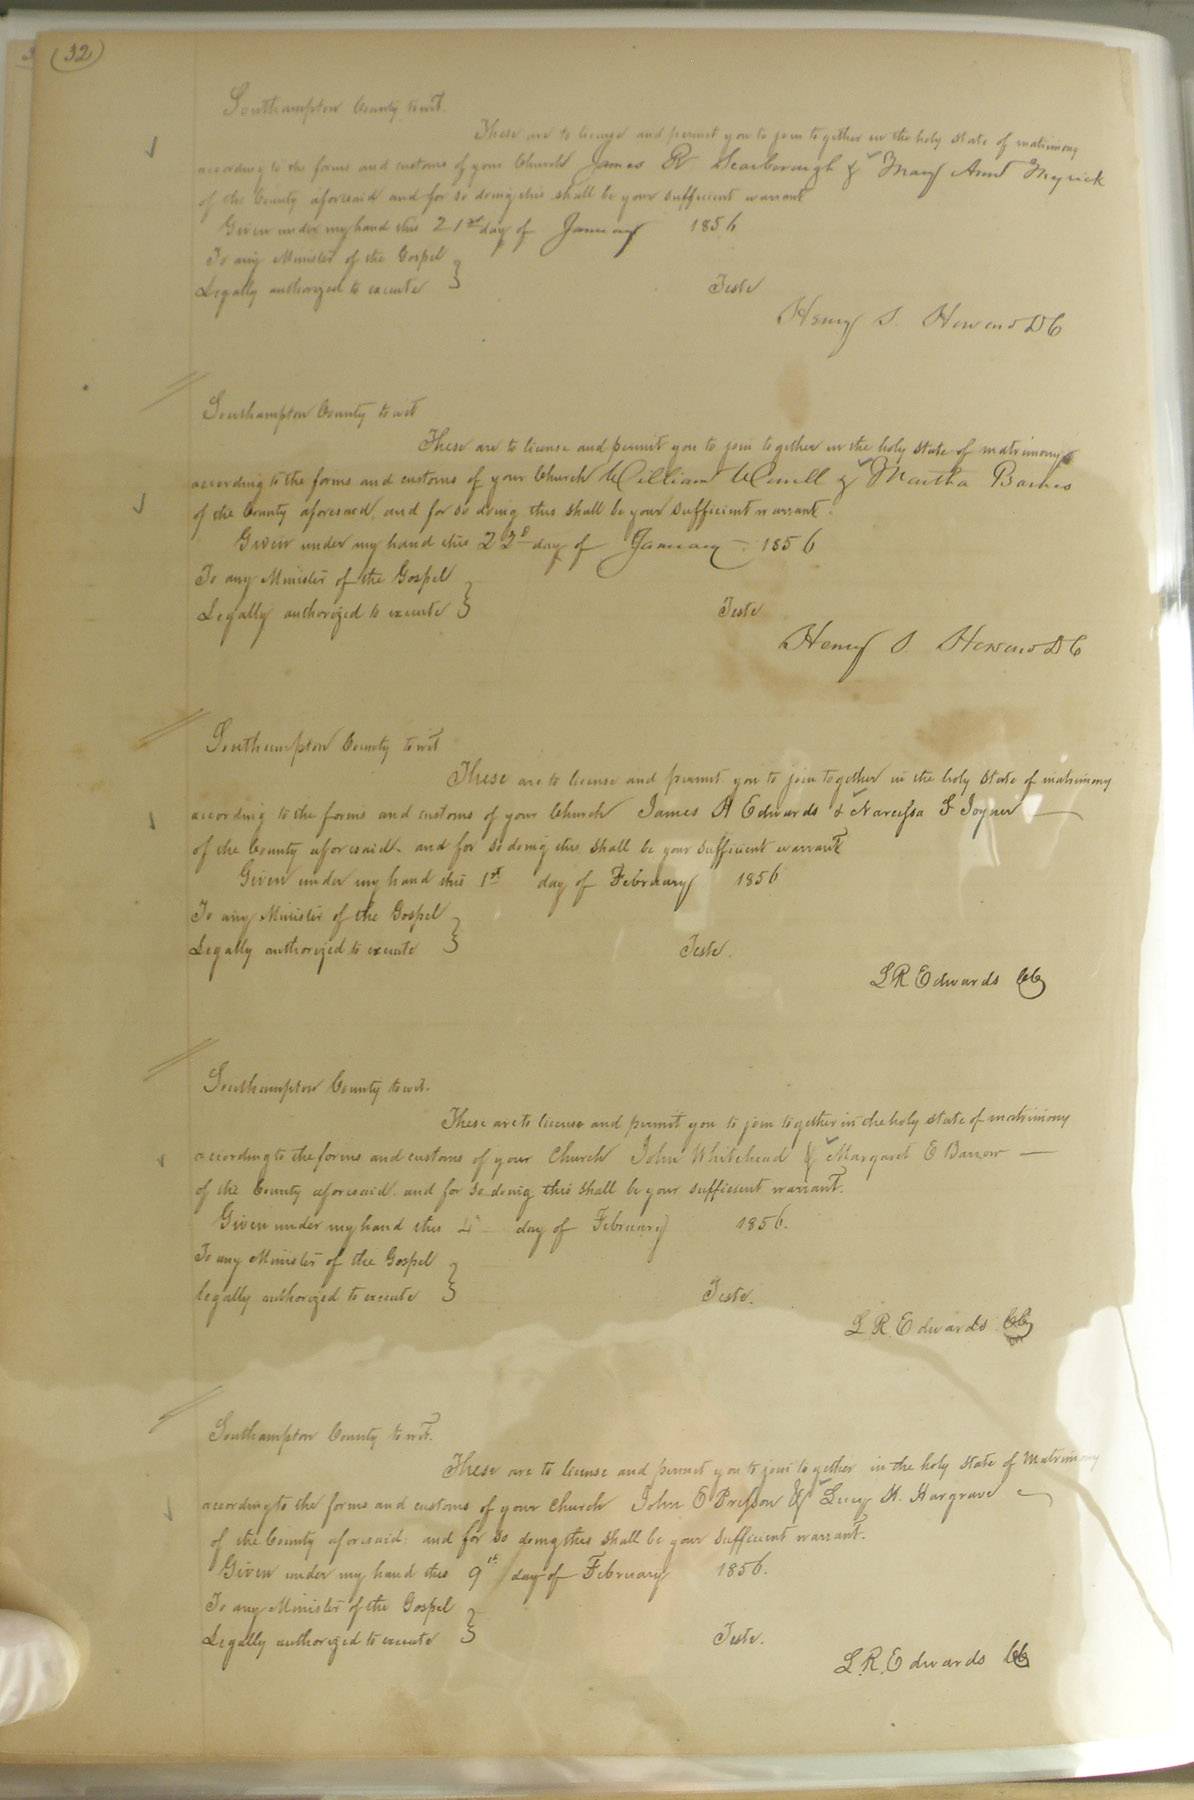 (32)
Southampton County towit.
These are to license and permit you to join together in the holy state of matrimony
according to the forms and customs of your Church James R Scarborough & Mary Ann Myrick
of the County aforesaid and for so doing this shall be your sufficient warrant
Given under my hand this 21st day of January 1856
To any Minister of the Gospel
Legally authorized to execute } Teste
Henry S. Howard DC
Southampton County towit
These are to license and permit you to join together in the holy state of matrimony
according to the forms and customs of your Church William & Martha Barnes
of the County aforesaid, and for so doing this shall be your sufficient warrant.
Given under my hand this 22d day of January 1856
To any Minister of the Gospel
Legally authorized to execute } Teste
Henry S. Howard DC
Southampton County towit
These are to license and permit you to join together in the holy state of matrimony
according to the forms and customs of your Church James H Edwards & Narcissa F Joyner
of the County aforesaid, and for so doing this shall be your sufficient warrant
Given under my hand this 1st day of February 1856
To any Minister of the Gospel
Legally authorized to execute } Teste.
L R Edwards CC
Southampton County towit.
These are to license and permit you to join together in the holy state of matrimony
according to the forms and customs of your Church John Whitehead & Margaret E Barrow
of the County aforesaid, and for so doing this shall be your sufficient warrant.
Given under my hand this 4 day of February 1856.
To any Minister of the Gospel
legally authorized to execute } Teste.
L R. Edwards CC
Southampton County towit.
These are to license and permit you to join together in the holy state of Matrimony
according to the forms and customs of your Church John E Presson & Lucy H. Hargrave
of the County aforesaid, and for so doing this shall be your sufficient warrant.
Given under my hand this 9th day of February 1856.
To any Minister of the Gospel
Legally authorized to execute } Teste.
L. R. Edwards CC